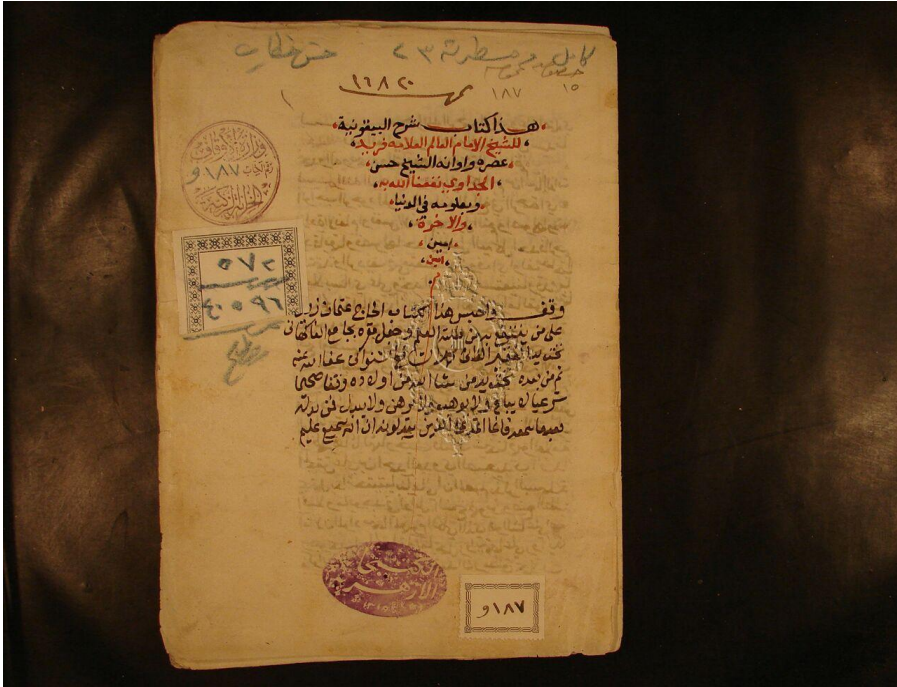 كامل
١٥
مسطرته ٢٣
١٦٨٢٠
١٨٧
١
هذا كتاب شرح البيقونية
للشيخ الامام العالم العلامه فريد
عصره واوانه الشيخ حسن
الجداوي نفعنا الله به
وبعلومه في الدنيا
والاخرة
امين
امين
م
وزارة الاوقاف
١٨٧ و
الخزانة الزكية
٥٧٢
٤٠٥٩٦
وقف واحبس هذا الكتاب الحاج عثمان
على من ينتفع به من طلبة العلم وجعل مقره بجامع الفاكهاني
تحت يد الفقير عفا الله عنه
ثم من بعده تحت يد من شا الله من اولاده وقفا صحيحا
شرعيا لا يباع ولا يوهب ولا يرهن ولا يبدل فمن بدله
بعدما سمعه فانما اثمه على الذين يبدلونه ان الله سميع عليم
الكتبخانة
الازهرية
١٨٧ و